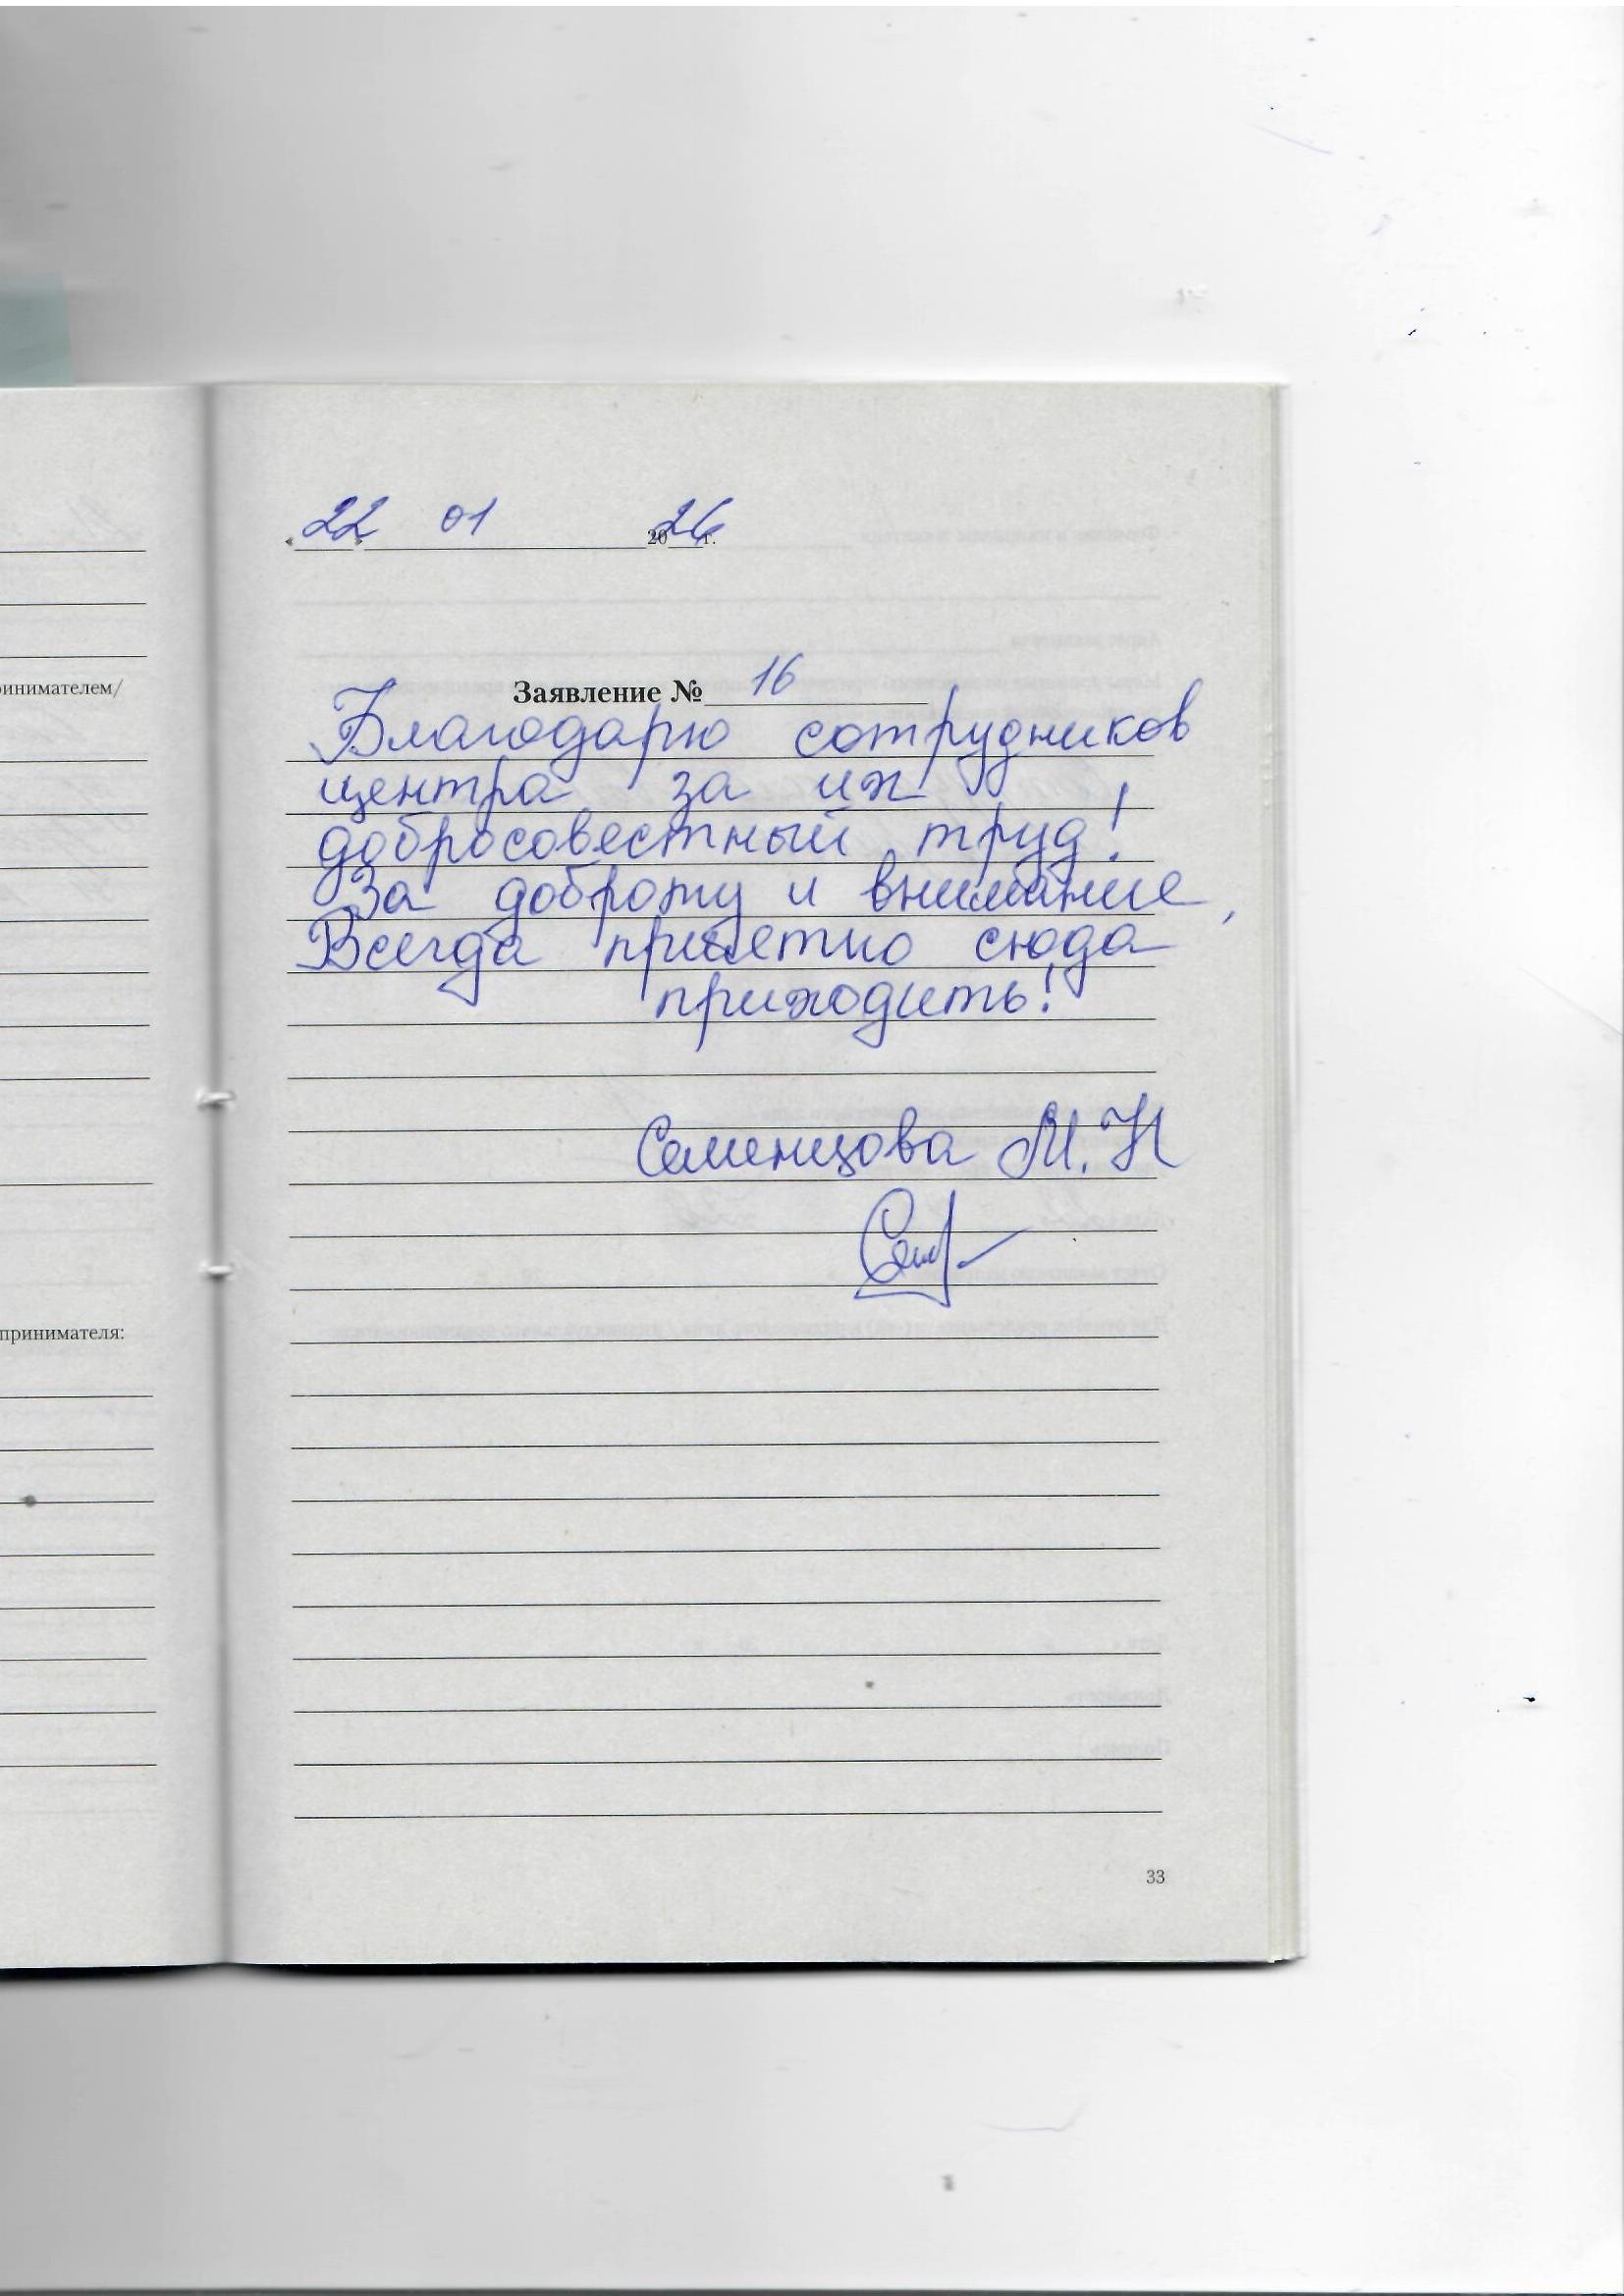 «22» 01 2026 г.
Заявление № 16
Благодарю сотрудников
центра за их
добросовестный труд!
За доброту и внимание,
Всегда приятно сюда
приходить!
Семенцова М.Н
33
ринимателем/
принимателя: